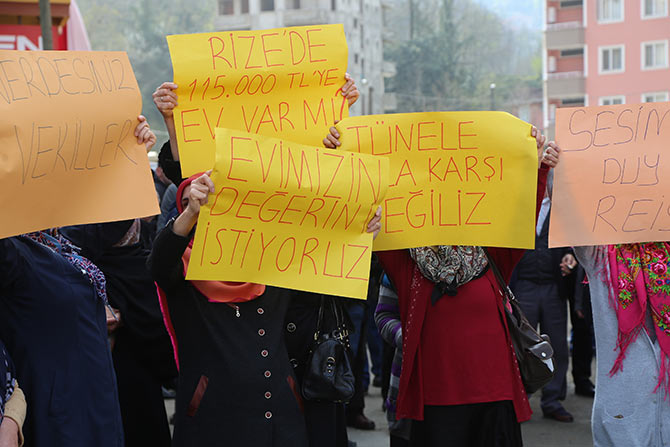 NERDESİNİZ
VEKİLLER
RİZE'DE
115.000 TL'YE
EV VAR MI
EVİMİZİN
DEĞERİNİ
İSTİYORUZ
TÜNELE
KARŞI
DEĞİLİZ
SESİM
DUY